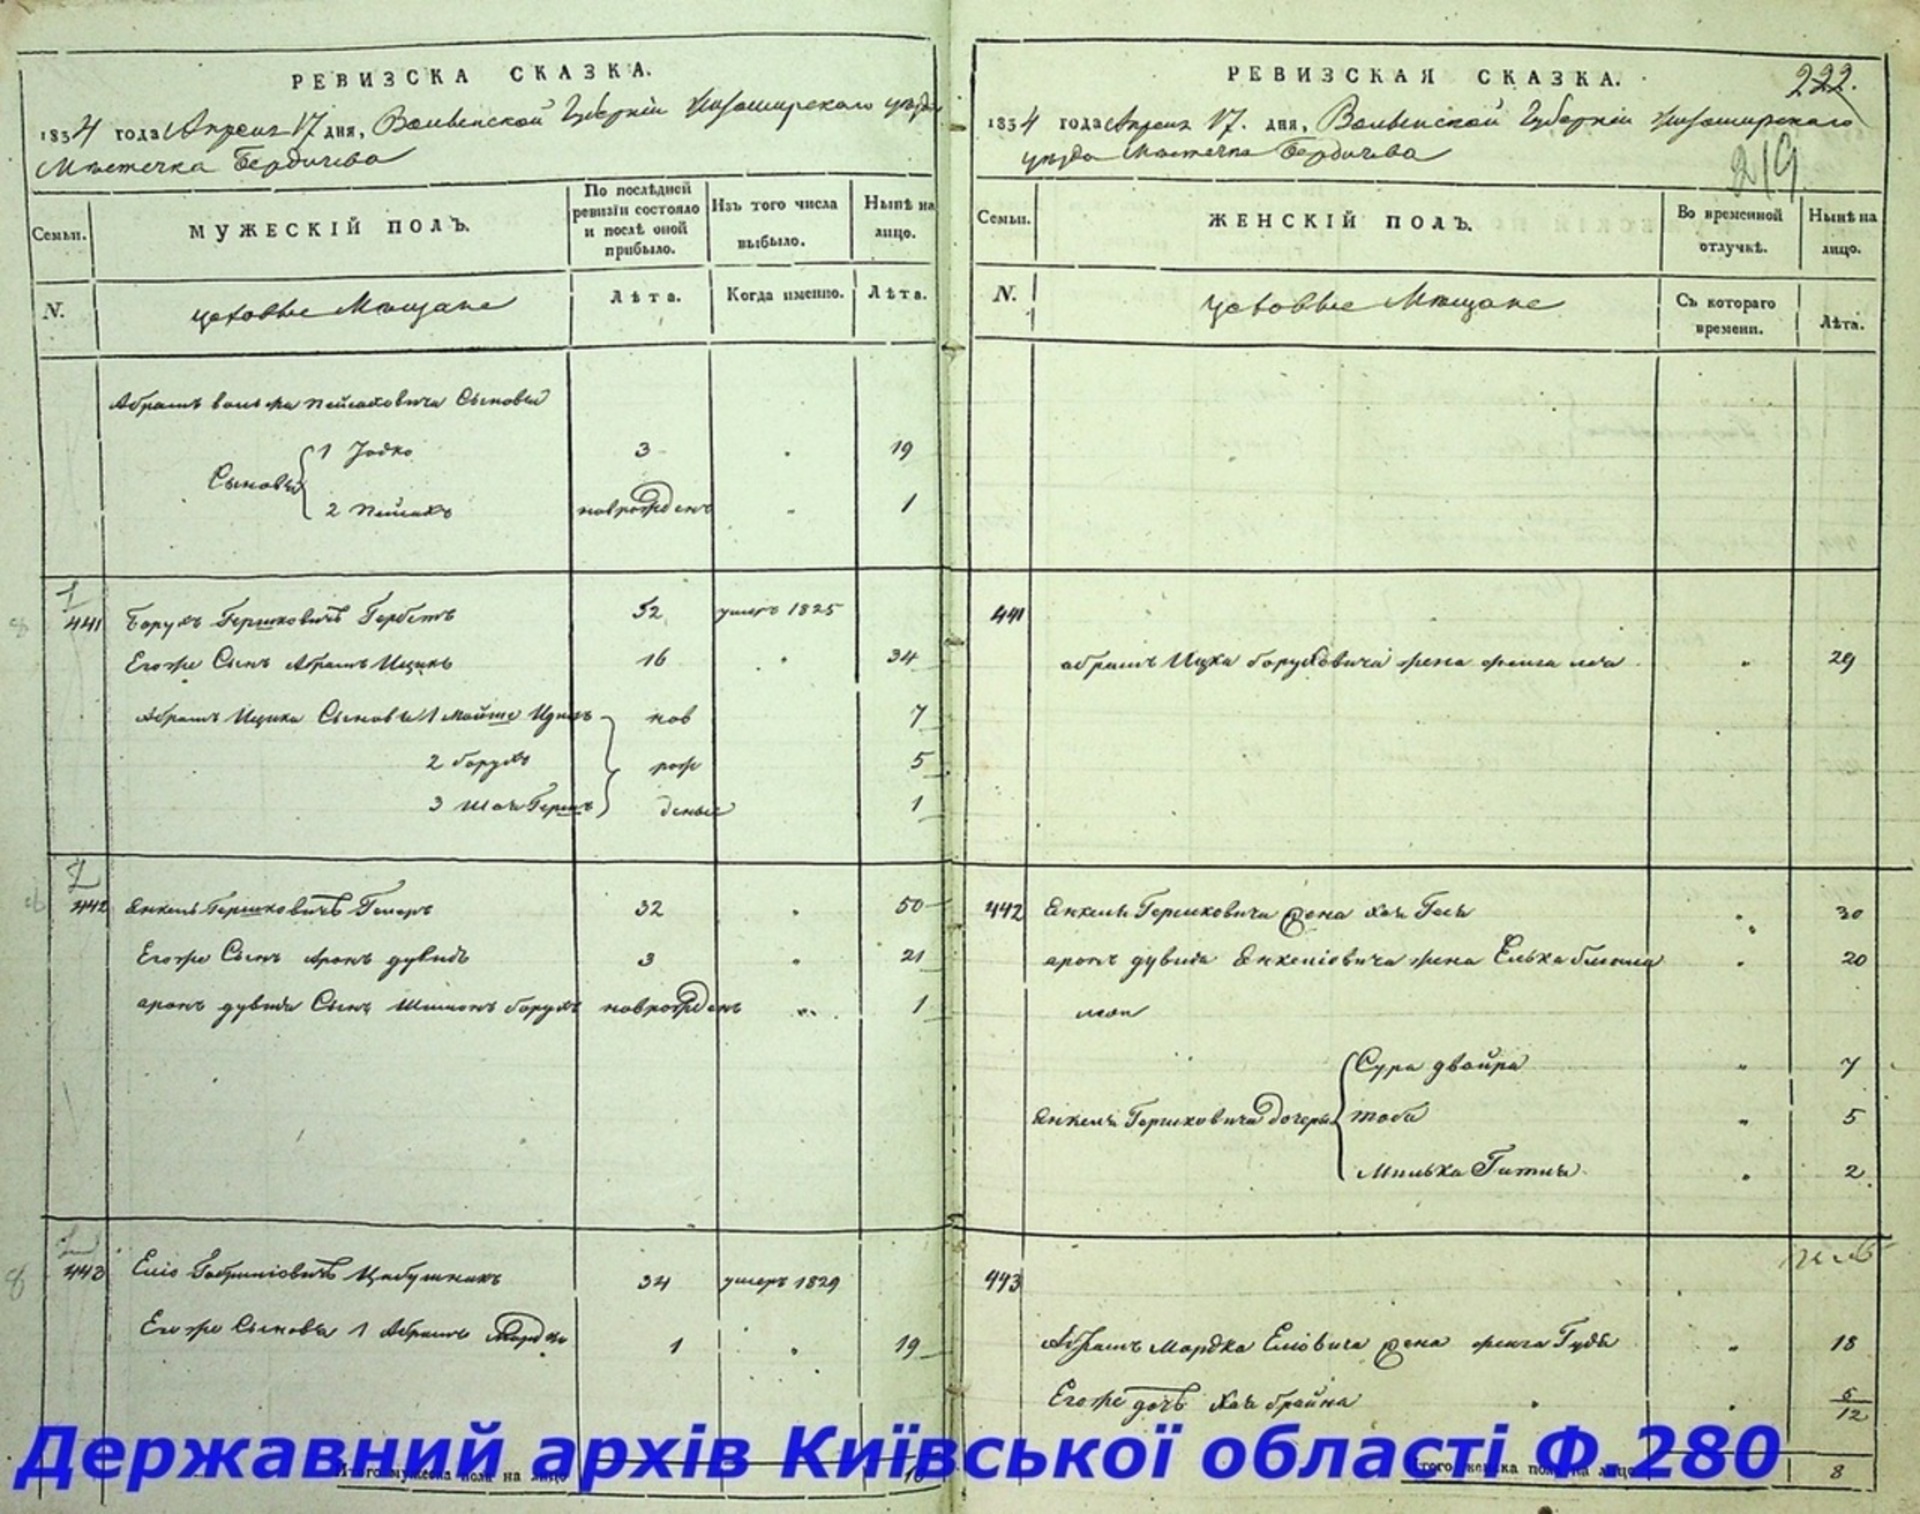 РЕВИЗСКА СКАЗКА.
1834 года Апреля 17 дня, Волынской Губерніи Житомирскаго уѣзда
Мѣстечка Бердичева
Семьи.
МУЖЕСКІЙ ПОЛЪ.
По послѣдней ревизіи состояло и послѣ оной прибыло.
Изъ того числа выбыло.
Нынѣ на лицо.
N.
цеховые Мѣщане
Лѣта.
Когда именно.
Лѣта.
Абрамъ Вольфа Пейсаховича Сыновья
Сыновья
1 Іодко 3 19
2 Пейсахъ новрожденъ 1
441 Борухъ Гершковичъ Гербетъ 52 умеръ 1825
Егоже Сынъ Абрамъ Ицикъ 16 34
Абрамъ Ицика Сыновья 1 Мойше Идель нов 7
2 борухъ рож 5
3 Герш деные 1
442 Янкель Гершковичъ 32 50
Егоже Сынъ Аронъ дувидъ 3 21
аронъ дувида Сынъ Шимонъ борухъ новрожденъ 1
443 Еліо Габриліовичъ Цыбульникъ 34 умеръ 1829
Егоже Сыновья 1 Абрамъ Мордко 1 19
Итого мужеска пола на лицо 10
РЕВИЗСКАЯ СКАЗКА.
222.
1834 года Апреля 17. дня, Волынской Губерніи Житомирскаго
уѣзда Мѣстечка Бердичева
219
Семьи.
ЖЕНСКІЙ ПОЛЪ.
Во временной отлучкѣ.
Нынѣ на лицо.
N.
Цеховые Мѣщане
Съ котораго времени.
Лѣта.
441
абрамъ Ицка боруховича жена лея 29
442 Янкеля Гершковича жена Хая Гися 30
аронъ дувида Янкеліовича жена Элька блюма 20
Янкеля Гершковича дочери
Сура двойра 7
тоба 5
Милька Гитля 2
443
Абрамъ Мордка Еліовича жена 18
Егоже дочь Хая брайна 6/12
Итого женска пола на лицо 8
Державний архів Київської області Ф.280